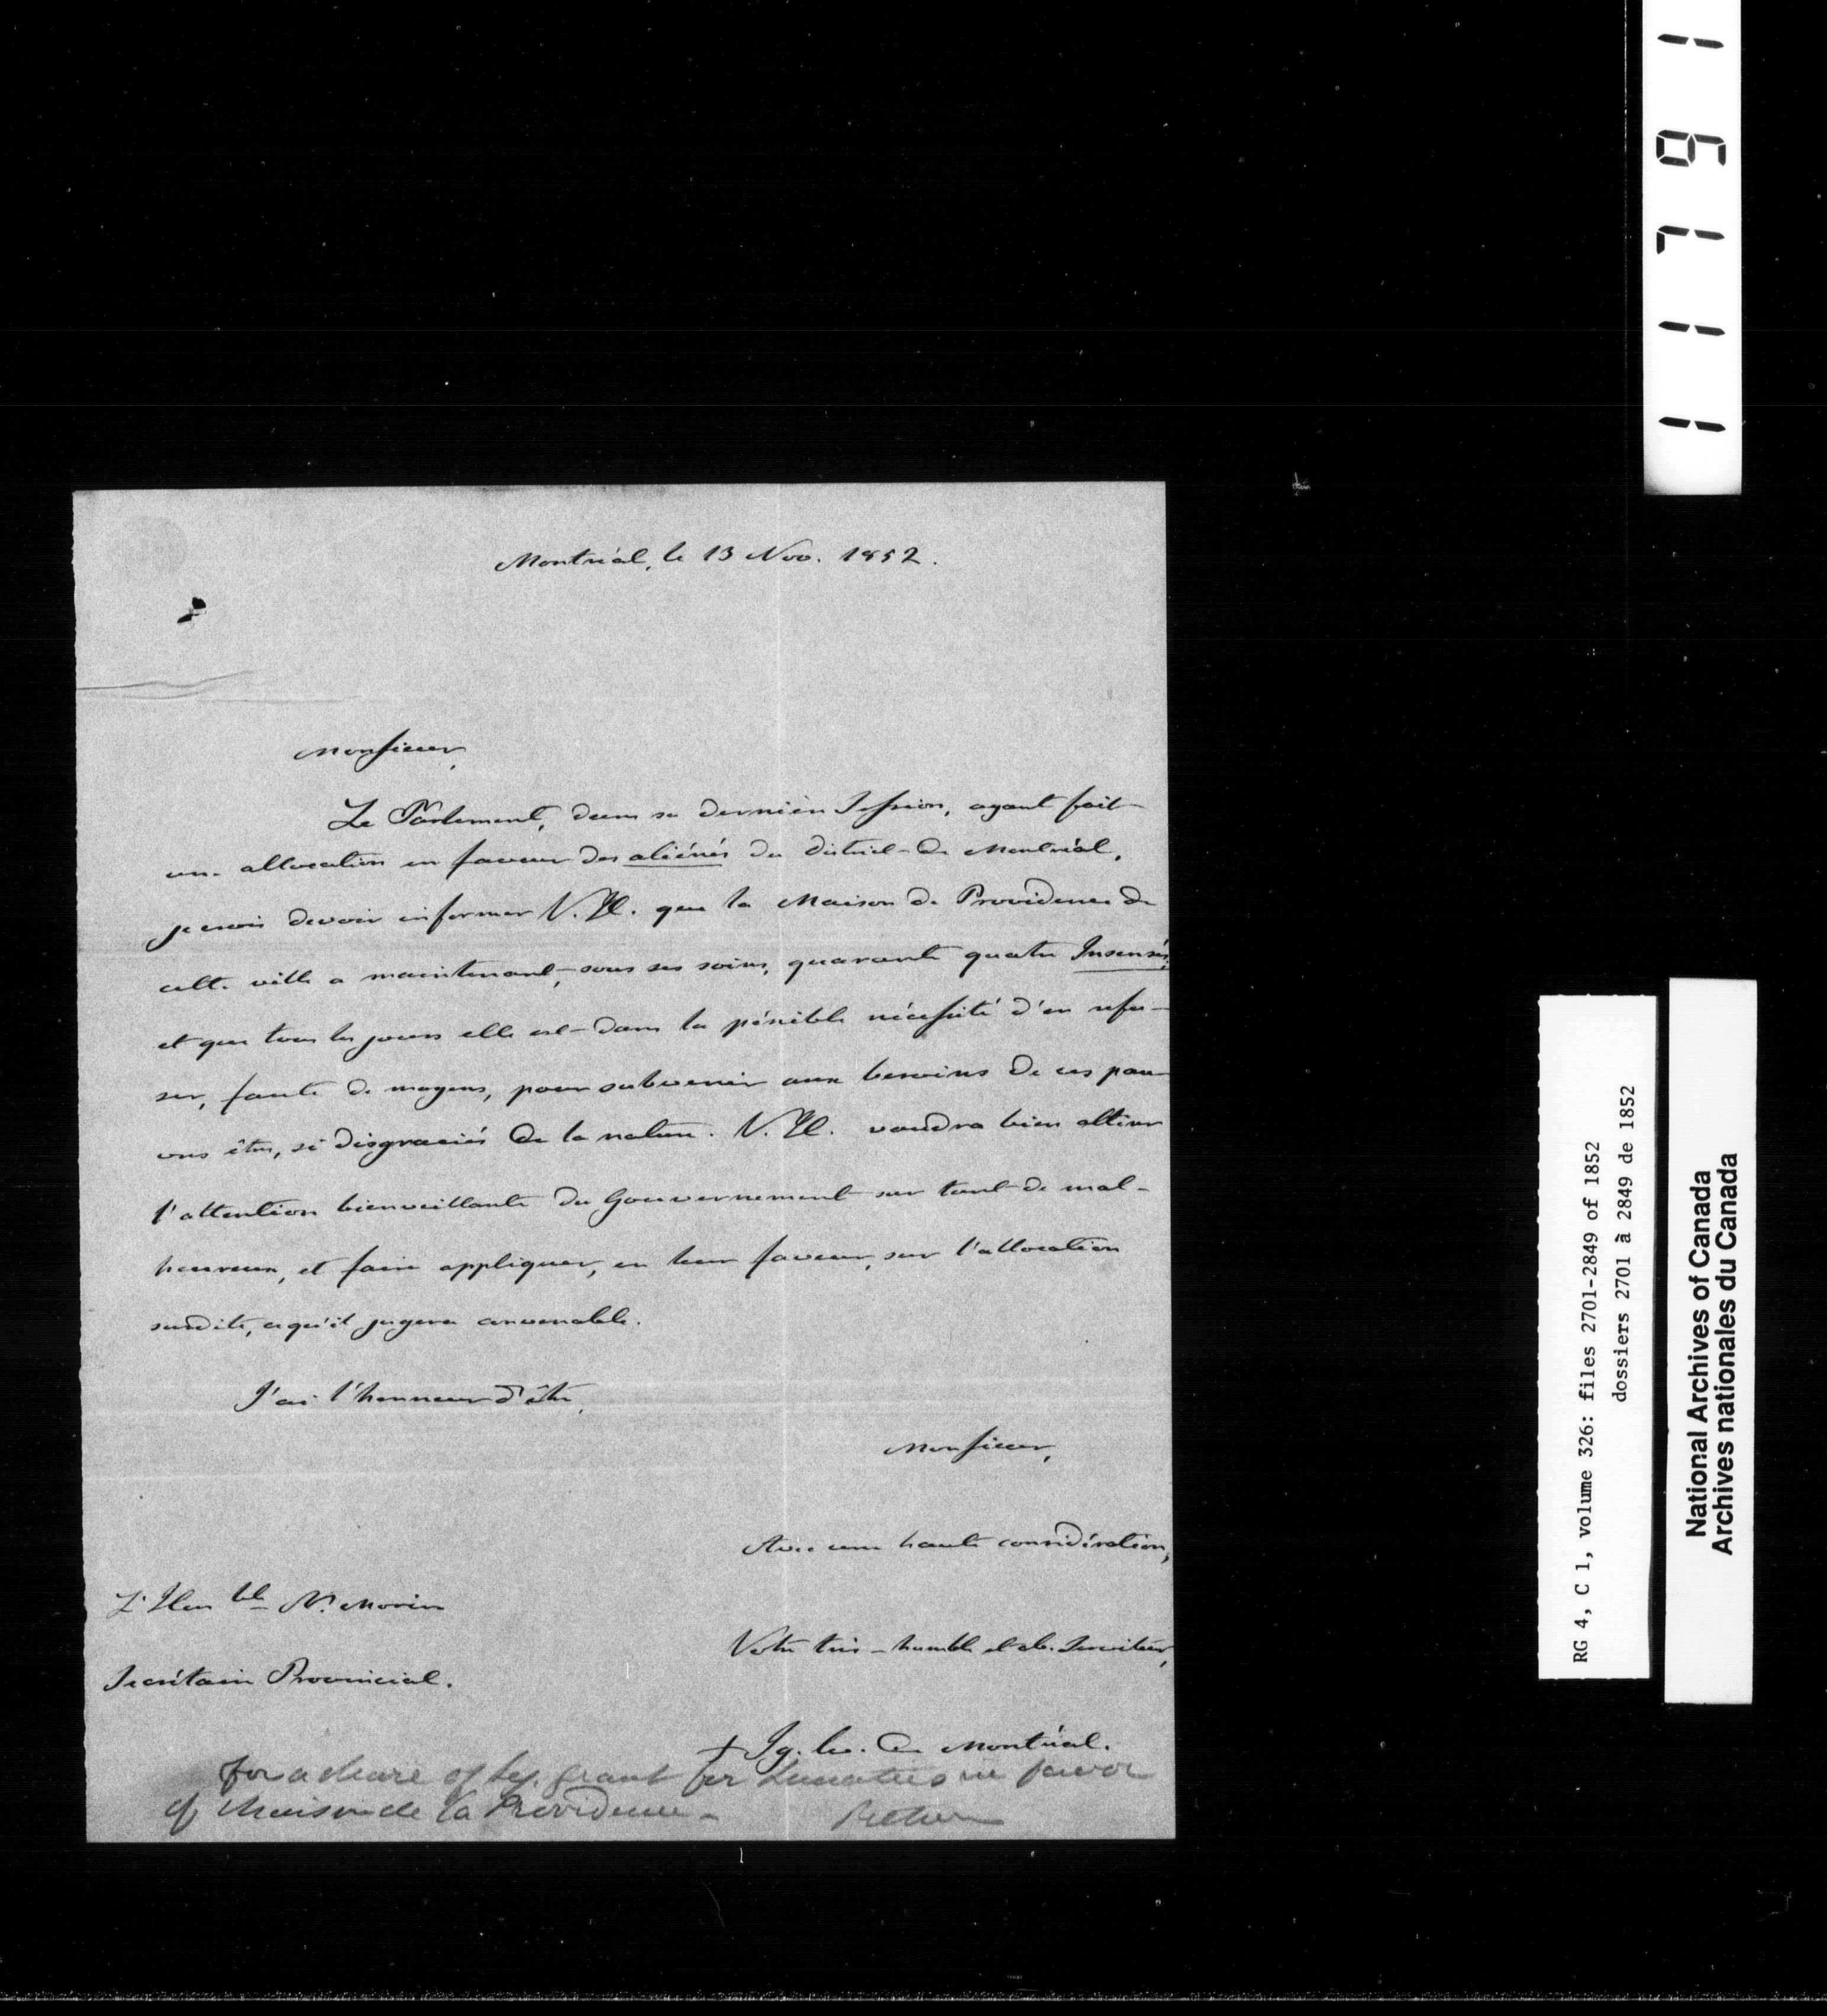 Montréal, le 13 Nov. 1852.
Monsieur,
Le Parlement, dans sa dernière Session, ayant fait
une allocation en faveur des aliénés du district de Montréal,
je crois devoir informer V. H. que la Maison de Providence de
cette ville a maintenant, sous ses soins, quarante quatre Insensés,
et que tous les jours elle est dans la pénible nécessité d'en refu-
ser, faute de moyens, pour subvenir aux besoins de ces pau-
vres êtres, si disgraciés de la nature. V. H. voudra bien attirer
l'attention bienveillante du Gouvernement sur tant de mal-
heureux, et faire appliquer, en leur faveur, sur l'allocation
susdite, ce qu'il jugera convenable.
J'ai l'honneur d'être,
Monsieur,
Avec une haute considération,
L'Hon ble Mr. Morin
Votre très-humble et ob. Serviteur,
Secrétaire Provincial.
† Ig. Ev. de Montréal.
for a share of Leg. grant for Lunatics in favor
of Maison de la Providence -
11791
RG 4, C 1, volume 326: files 2701-2849 of 1852
dossiers 2701 à 2849 de 1852
National Archives of Canada
Archives nationales du Canada